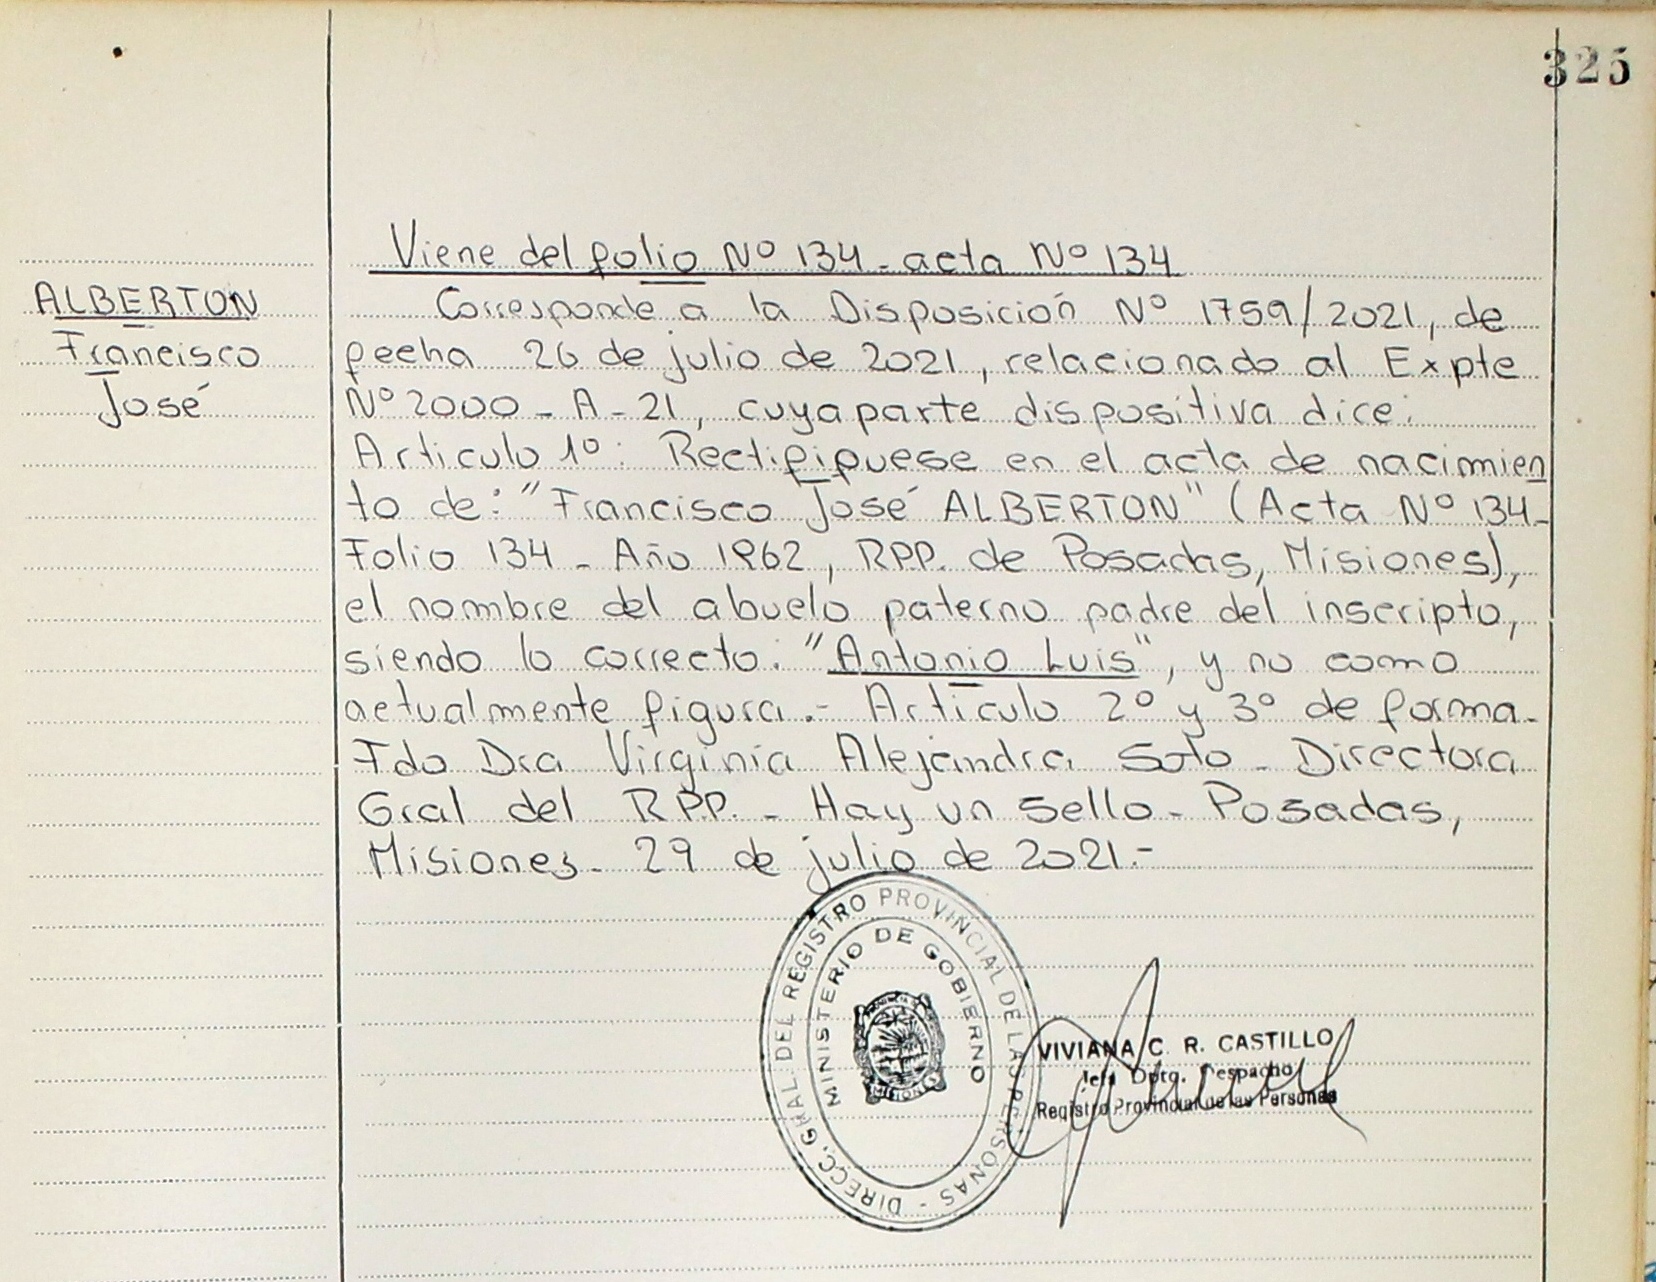 325
Viene del folio Nº 134 - acta Nº 134
ALBERTON
Francisco
José
Corresponde a la Disposición Nº 1759/2021, de
fecha 26 de julio de 2021, relacionado al Expte
Nº 2000 - A - 21, cuya parte dispositiva dice:
Articulo 1º: Rectifiquese en el acta de nacimien
to de: "Francisco José ALBERTON" (Acta Nº 134-
Folio 134 - Año 1962, RPP. de Posadas, Misiones),
el nombre del abuelo paterno padre del inscripto,
siendo lo correcto: "Antonio Luis", y no como
actualmente figura.- Artículo 2º y 3º de forma-
Fdo Dra Virginia Alejandra Soto - Directora
Gral del RPP. - Hay un sello - Posadas,
Misiones - 29 de julio de 2021.-
DIRECC. GRAL. DEL REGISTRO PROVINCIAL DE LAS PERSONAS -
MINISTERIO DE GOBIERNO
VIVIANA C. R. CASTILLO
Jefa Dpto. Despacho
Registro Provincial de las Personas